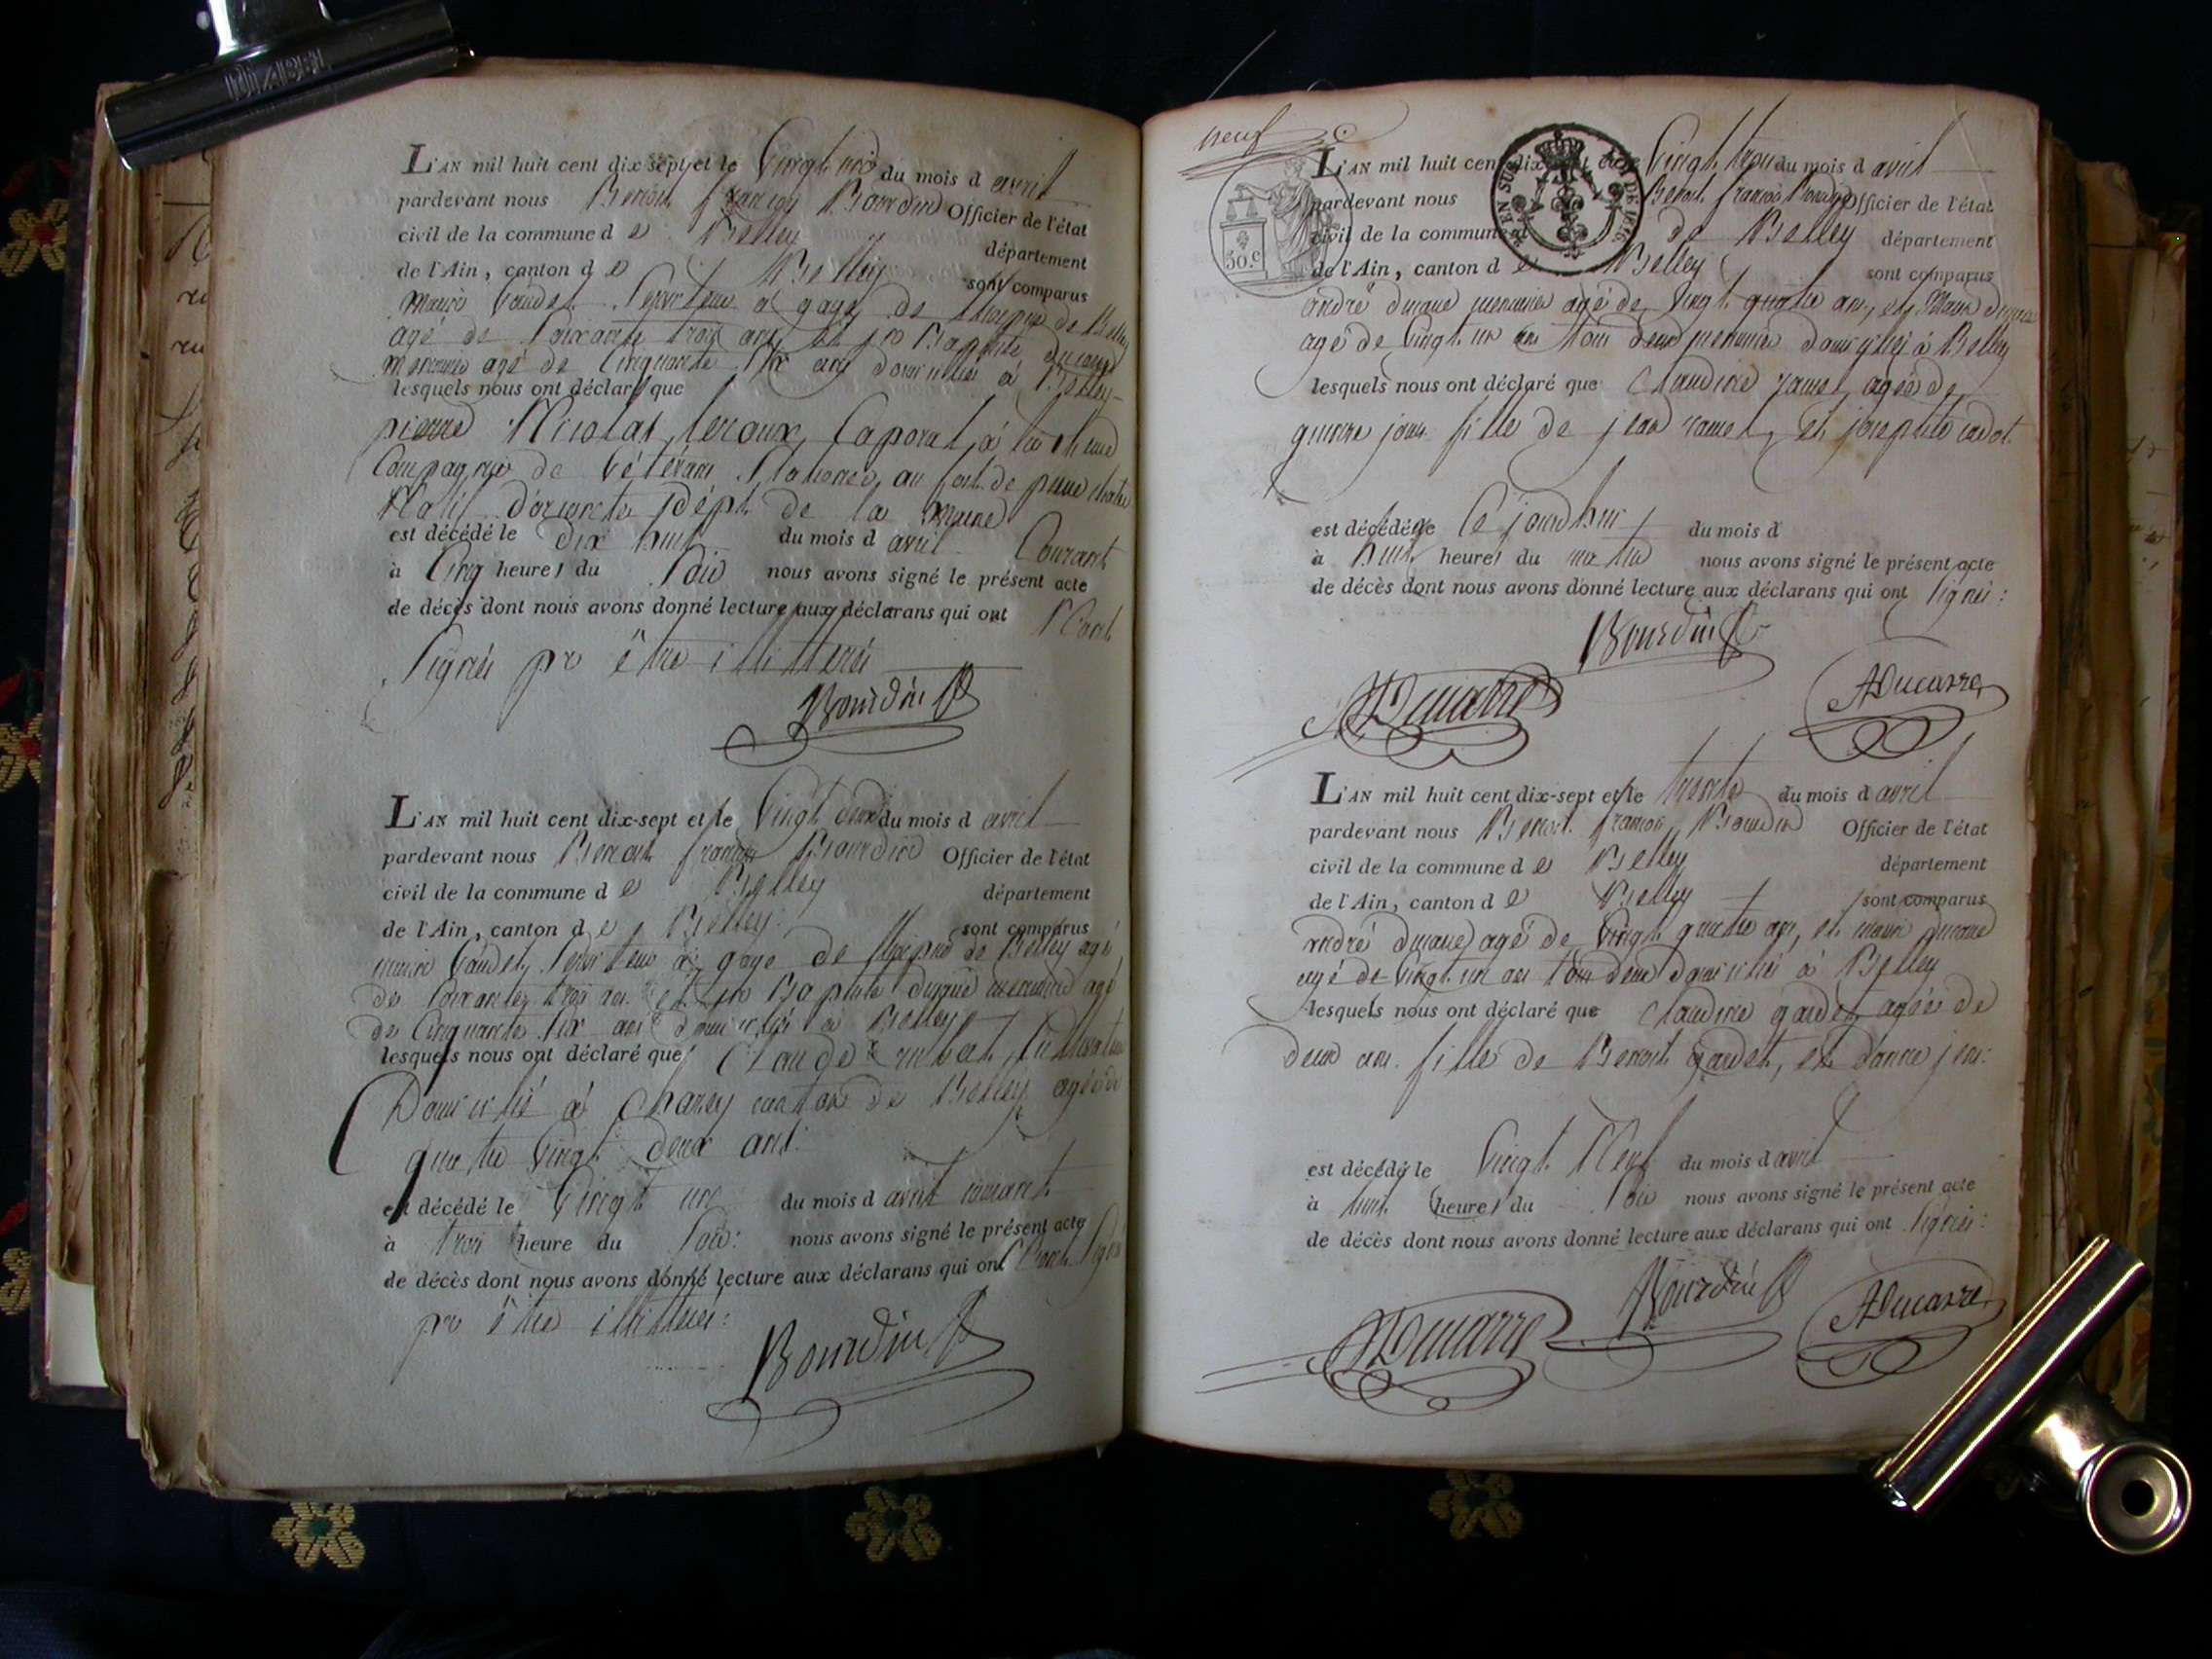 L'AN mil huit cent dix-sept et le Vingt un du mois d avril
pardevant nous Benoit françois Bourdin Officier de l'état
civil de la commune d e Belley département
de l'Ain, canton d e Belley sont comparus
Serviteur a gage de L'hospice de Belley
agé de Soixante trois ans et jn Baptiste
agé de Cinquante Six ans domiciliés à Belley
lesquels nous ont déclaré que
pierre Nicolas leroux, Caporal à la
Compagnie de Vétérans Stationée, au fort de pierre chatel
Natif dép.t de la marne
est décédé le dix huit du mois d avril Courant
à Cinq heures du Soir nous avons signé le présent acte
de décès dont nous avons donné lecture aux déclarans qui ont N'ont
Signés pr être illitterés
Bourdin
L'AN mil huit cent dix-sept et le Vingt deux du mois d avril
pardevant nous Benoit françois Bourdin Officier de l'état
civil de la commune d e Belley département
de l'Ain, canton d e Belley sont comparus
Serviteur à gage de L'hospice de Belley agé
de Soixante trois ans et jn Baptiste menuisier agé
de Cinquante Six ans domiciliés à Belley
lesquels nous ont déclaré que Claude Cultivateur
Domicilié à canton de Belley agé de
quatre Vingt deux ans.
est décédé le Vingt un du mois d avril courant
à trois heure du Soir: nous avons signé le présent acte
de décès dont nous avons donné lecture aux déclarans qui ont N'ont Signés
pr être illitterés:
Bourdin
neuf
50.c
EN SUS
L'AN mil huit cent dix-sept et le Vingt trois du mois d avril
pardevant nous Benoit françois Bourdin Officier de l'état
civil de la commune d de Belley département
de l'Ain, canton d e Belley sont comparus
andré ducarre menuisier agé de Vingt quatre ans, et ducarre
agé de Vingt un ans tous deux menuisiers domiciliés à Belley
lesquels nous ont déclaré que Claudine ramel, agée de
quinze jours fille de jean ramel, et josephte
est décédée le Ce jourd'hui du mois d
à huit heures du matin nous avons signé le présent acte
de décès dont nous avons donné lecture aux déclarans qui ont Signés:
Bourdin
Ducarre
ADucarre
L'AN mil huit cent dix-sept et le trente du mois d avril
pardevant nous Benoit françois Bourdin Officier de l'état
civil de la commune d e Belley département
de l'Ain, canton d e Belley sont comparus
andré ducarre agé de Vingt quatre ans, et ducarre
agé de Vingt un ans tous deux domiciliés à Belley
lesquels nous ont déclaré que Claudine gaudet agée de
deux ans. fille de Benoit gaudet, et
est décédé le Vingt Neuf du mois d avril
à huit heures du Soir nous avons signé le présent acte
de décès dont nous avons donné lecture aux déclarans qui ont Signés:
Bourdin
Ducarre
ADucarre